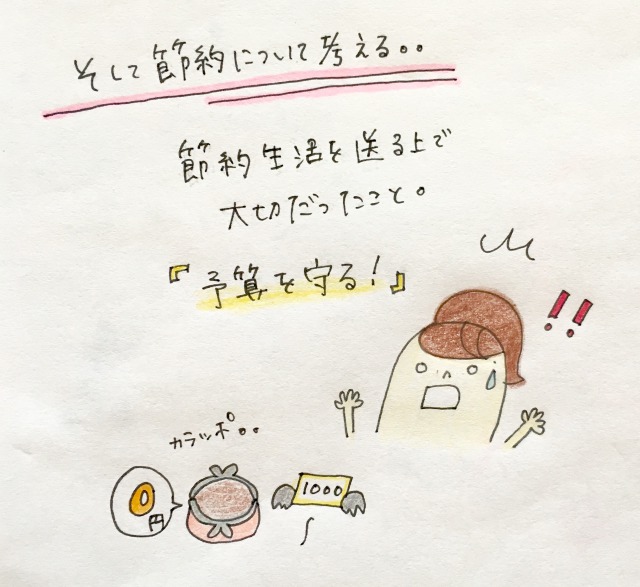 そして節約について考える..
節約生活を送る上で
大切だったこと。
『予算を守る!』
!!
カラッポ..
0円
1000